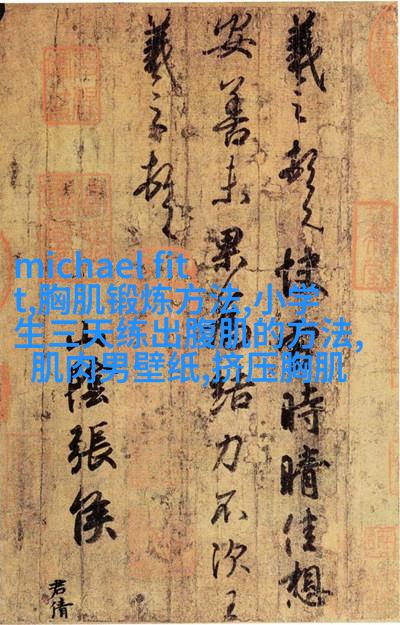 羲之頓首快雪時晴佳想
安善未果為結力不次王
羲之頓首
山陰張侯
君倩
michael fit
t,胸肌锻炼方法,小学
生三天练出腹肌的方法,
肌肉男壁纸,挤压胸肌